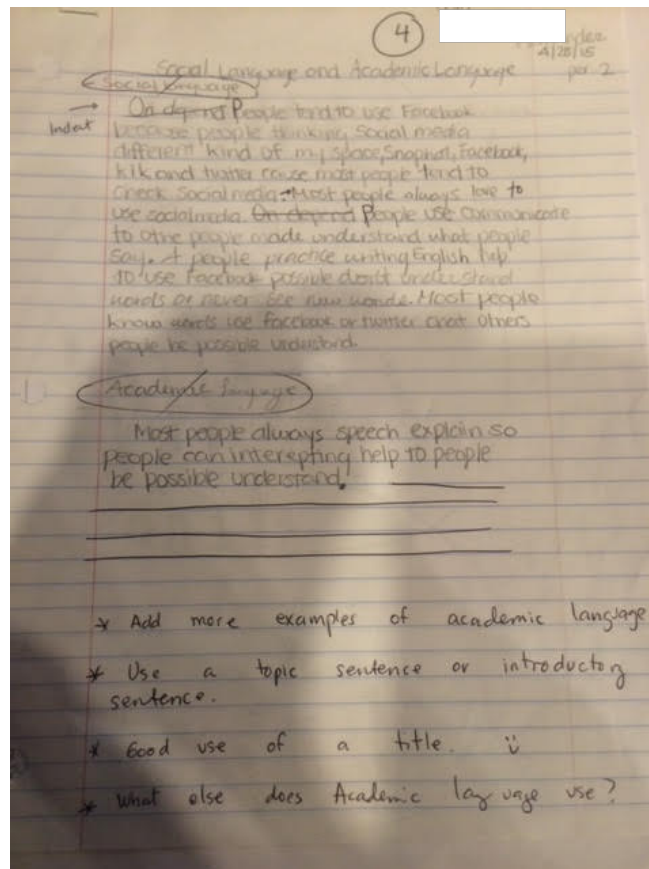 4
4/28/15
Social Language and Academic Language
per. 2
Social language
On depend People tend to use Facebook
Indent
because people thinking social media
different kind of my space, Snapchat, Facebook,
kik and twitter cause most people tend to
check social media. Most people always love to
use social media. On depend People use communicate
to othe people made understand what people
say. A people practice writing English help
to use Facebook possible don't understand
words or never see new words. Most people
know words use facebook or twitter chat others
people be possible understand.
Academic language
Most people always speech explain so
people can interepting help to people
be possible understand.
* Add more examples of academic language
* Use a topic sentence or introductory
sentence.
* Good use of a title.
* What else does Academic language use?